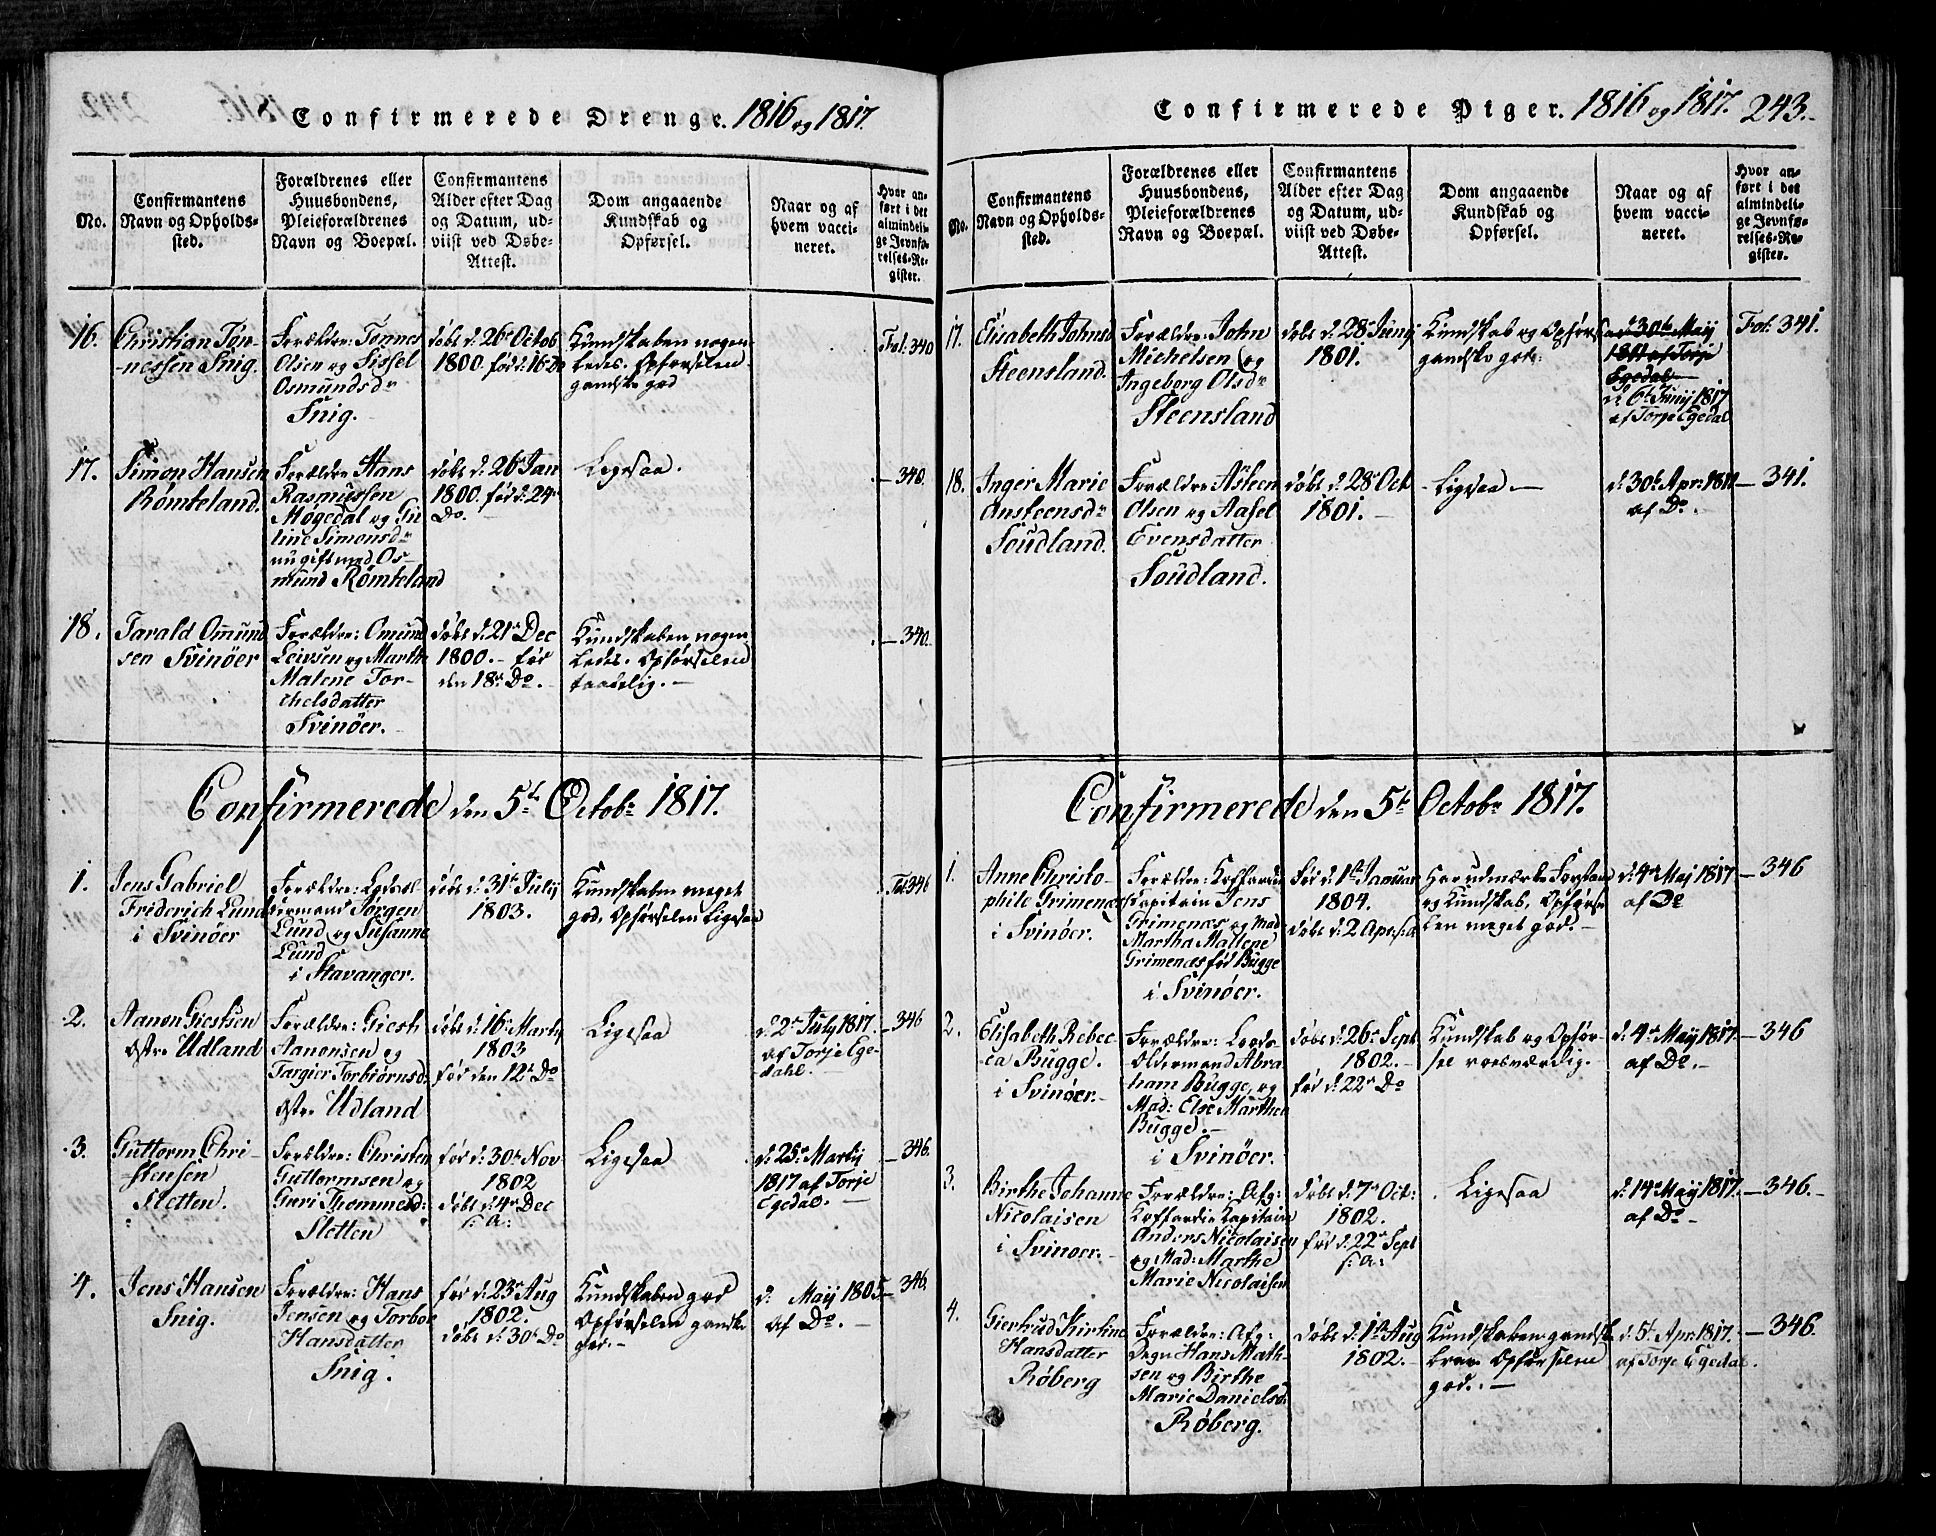 Confirmerede Drenge. 1816 og 1817.
No.
Confirmantens
Navn og Opholds-
sted.
Forældrenes eller
Huusbondens,
Pleieforældrenes
Navn og Boepæl.
Confirmantens
Alder efter Dag
og Datum, ud-
viist ved Døbe-
Attest.
Dom angaaende
Kundskab og
Opførsel.
Naar og af
hvem vacci-
neret.
Hvor an-
ført i det
almindeli-
ge Jevnfø-
relses-Re-
gister.
16.
Christian Tøn-
nessen Snig.
Forældre: Tønnes
Olsen og Sissel
Osmundsdr
Snig.
døbt d: 26de Octob
1800. fød d: 16 do
Kundskaben nogen-
ledes. Opførselen
gandske god
Fol. 340
17.
Simon Hansen
Rømteland.
Forældre Hans
Rasmussen
Møgedal og Gu
line Simonsdr
nu gift med Os-
mund Rømteland
døbt d: 26de Jan
1800. fød d: 24de
Do.
Ligesaa.
— 340.
18.
Tarald Omund
sen Svinøer
Forældre: Omund
Leivsen og Marthe
Malene Tor-
chelsdatter
Svinöer.
døbt d: 21de Dec
1800. — fød
den 18de Do. —
Kundskaben nogen
ledes. Opførselen
taadelig. —
— 340.
Confirmerede den 5te Octobr 1817.
1.
Jens Gabriel
Friderich Lund
i Svinöer
Forældre: Lods-
Jørgen
Lund og Susanne
Lund
i Stavanger.
døbt d: 31te Julij
1803.
Kundskaben meget
god. Opførselen ligesaa
Fol. 346
2.
Aanon Giestsen
østre Udland
Forældre: Giest
Aanonsen og
Targier Torbiørnsd:
østre Udland
døbt d: 16de Martij
1803
fød den 12te Do
Ligesaa
d: 2de July 1817.
af Torje Ege-
dahl.
346
3.
Guttorm Chri-
stensen
Sletten.
Forældre: Christen
Guttormsen og
Guri Thommesd:
Sletten
fød d: 30te Nov
1802
døbt d: 4de Dec
s: a:
Ligesaa
d: 25de Martij
1817 af Torje
Egedal.
— 346.
4.
Jens Hansen
Snig.
Forældre: Hans
Jensen og Torboe
Hansdatter
Snig.
fød d: 23de Aug
1802.
døbt d: 30te Do
Kundskaben god
Opførselen ganske
god. —
d: Maij 1805
af Do. —
— 346.
Confirmerede Piger. 1816 og 1817. 243.
No.
Confirmantens
Navn og Opholds-
sted.
Forældrenes eller
Huusbondens,
Pleieforældrenes
Navn og Boepæl.
Confirmantens
Alder efter Dag
og Datum, ud-
viist ved Døbe-
Attest.
Dom angaaende
Kundskab og
Opførsel.
Naar og af
hvem vacci-
neret.
Hvor an-
ført i det
almindeli-
ge Jevnfø-
relses-Re-
gister.
17.
Elisabeth Johnsd
Steensland.
Forældre: John
Michelsen og
Ingeborg Olsdr
Steensland
døbt d: 28de Junij
1801.
Kundskab og Opførsel
gandske god:
d: 30te Maij
1811 af Torje
Egedal
d: 6te Junij 1817
af Torje Egedal
Fol. 341.
18.
Inger Marie
Ansteensdr
Soudland.
Forældre Asteen
Olsen og Aasel
Evensdatter
Soudland.
døbt d: 28de Oct
1801. —
Ligesaa —
d: 30te Apr: 1811
af Do. —
— 341.
Confirmerede den 5te Octobr 1817.
1.
Anne Christo-
phile Grimenæs
i Svinöer.
Forældre: Koffardie
Capitain Jens
Grimenæs og Mad
Martha Mallene
Grimenæs fød Bugge
i Svinöer.
fød d: 1te Januar
1804.
døbt d: 2 Apr. s.a.
Har udmærket Forstand
og Kundskab, Opførse
len meget god. —
d: 4de Maj 1817
af Do
— 346
2.
Elisabeth Rebec-
ca Bugge.
i Svinöer. —
Forældre: Lods-
Oldermand Abra
ham Bugge, og
Mad: Else Marthea
Bugge. —
i Svinöer.
døbt d: 26de Sept
1802. —
fød d: 22de Do
Kundskab og Opfør-
sel roesværdig. —
d: 4de Maij 1817
af Do. —
— 346
3.
Birthe Johanne
Nicolaisen
i Svinoer. —
Forældre: Afg:
Koffardie Kapitain
Anders Nicolaisen
og Mad: Marthe
Marie Nicolaisen
døbt d: 7de Oct:
1802.
fød d: 22de Sept
s: a:
Ligesaa
d: 14de Maij 1817.
af Do —
— 346. —
4.
Giertrud Kirtine
Hansdatter
Røberg
Forældre: Afg:
Degn Hans Math-
sen og Birthe
Marie Danielsd:
Røberg.
døbt d: 1te Aug
1802. —
Kundskaben gandske
brav. Opførselen
god. —
d: 5te Apr: 1817.
af Torje Egedal.
— 346.